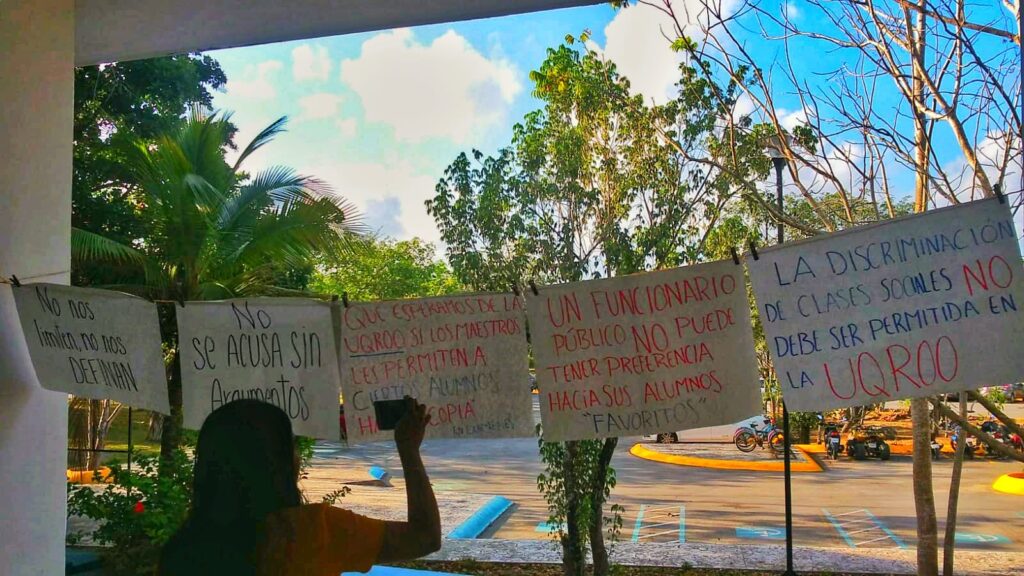 No nos
limiten, no nos
DEFINAN
No
se ACUSA sin
Argumentos
QUE ESPERAMOS DE LA
UQROO SI LOS MAESTROS
LES PERMITEN A
CIERTOS ALUMNOS
COPIA
UN FUNCIONARIO
PÚBLICO NO PUEDE
TENER PREFERENCIA
HACIA SUS ALUMNOS
"FAVORITOS"
LA DISCRIMINACIÓN
DE CLASES SOCIALES NO
DEBE SER PERMITIDA EN
LA UQROO